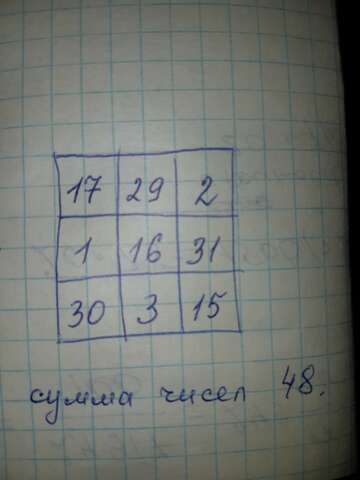 17 29 2
1 16 31
30 3 15
сумма чисел 48.